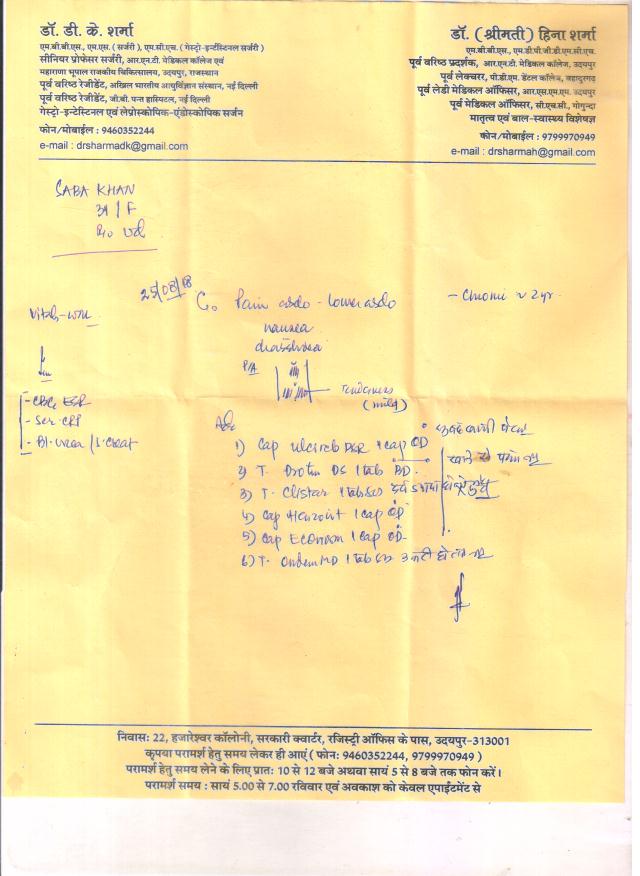 डॉ. डी. के. शर्मा
एम.बी.बी.एस., एम.एस. ( सर्जरी ), एम.सी.एच. ( गेस्ट्रो-इन्टेंस्टिनल सर्जरी )
सीनियर प्रोफेसर सर्जरी, आर.एन.टी. मेडिकल कॉलेज एवं
महाराणा भूपाल राजकीय चिकित्सालय, उदयपुर, राजस्थान
पूर्व वरिष्ठ रेजीडेंट, अखिल भारतीय आयुर्विज्ञान संस्थान, नई दिल्ली
पूर्व वरिष्ठ रेजीडेंट, जी.बी. पन्त हास्पिटल, नई दिल्ली
गेस्ट्रो-इन्टेस्टिनल एवं लेप्रोस्कोपिक-एंडोस्कोपिक सर्जन
फोन/मोबाईल : 9460352244
e-mail : drsharmadk@gmail.com
डॉ. (श्रीमती) हिना शर्मा
एम.बी.बी.एस., एम.डी.पी.जी.डी.एम.सी.एच.
पूर्व वरिष्ठ प्रदर्शक, आर.एन.टी. मेडिकल कॉलेज, उदयपुर
पूर्व लेक्चरर, पी.डी.एम. डेंटल कॉलेज, बहादुरगढ
पूर्व लेडी मेडिकल ऑफिसर, आर.एस.एम.एम. उदयपुर
पूर्व मेडिकल ऑफिसर, सी.एच.सी., गोगुन्दा
मातृत्व एवं बाल-स्वास्थ्य विशेषज्ञ
फोन/मोबाईल : 9799970949
e-mail : drsharmah@gmail.com
SABA KHAN
/ F
25/08/18
C/o Pain abdo - lower abdo
nausea
diarrhoea
P/A
Tenderness
(mild)
- CBC, ESR
- Ser. CRP
- Bl. urea / S. creat
Adv
1) Cap DSR 1 cap OD
2) T. Drotin DS 1 tab BD.
3) T. 1 tab
4) Cap 1 cap OD
5) Cap Econorm 1 cap OD
6) T. Ondem MD 1 tab
निवास: 22, हजारेश्वर कॉलोनी, सरकारी क्वार्टर, रजिस्ट्री ऑफिस के पास, उदयपुर-313001
कृपया परामर्श हेतु समय लेकर ही आएं ( फोन: 9460352244, 9799970949 )
परामर्श हेतु समय लेने के लिए प्रातः 10 से 12 बजे अथवा सायं 5 से 8 बजे तक फोन करें।
परामर्श समय : सायं 5.00 से 7.00 रविवार एवं अवकाश को केवल एपाईंटमेंट से